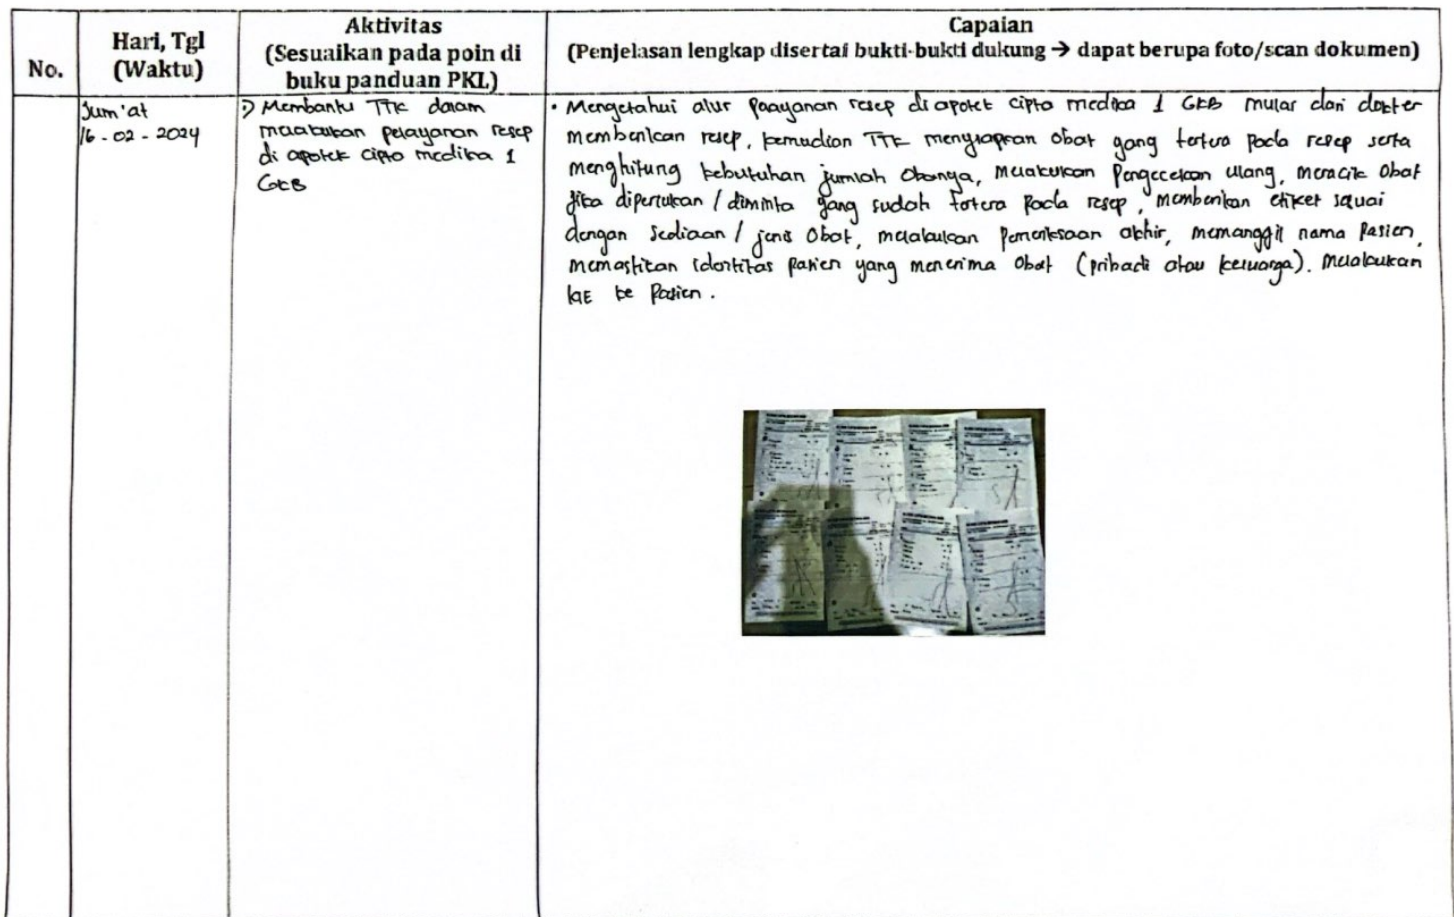 No.
Hari, Tgl
(Waktu)
Aktivitas
(Sesuaikan pada poin di
buku panduan PKL)
Capaian
(Penjelasan lengkap disertai bukti-bukti dukung → dapat berupa foto/scan dokumen)
Jum'at
16-02-2024
Membantu TTK dalam
melakukan pelayanan resep
di apotek cipta medika 1
GKB
• Mengetahui alur pelayanan resep di apotek cipta medika 1 GKB mulai dari dokter
memberikan resep, kemudian TTK menyiapkan obat yang tertera pada resep serta
menghitung kebutuhan jumlah obatnya, melakukan Pengecekan ulang, meracik Obat
jika diperlukan / diminta yang sudah tertera pada resep, memberikan etiket sesuai
dengan Sediaan / jenis Obat, melakukan Pemeriksaan akhir, memanggil nama Pasien,
memastikan identitas Pasien yang menerima Obat (pribadi atau keluarga). Melakukan
KIE ke Pasien.